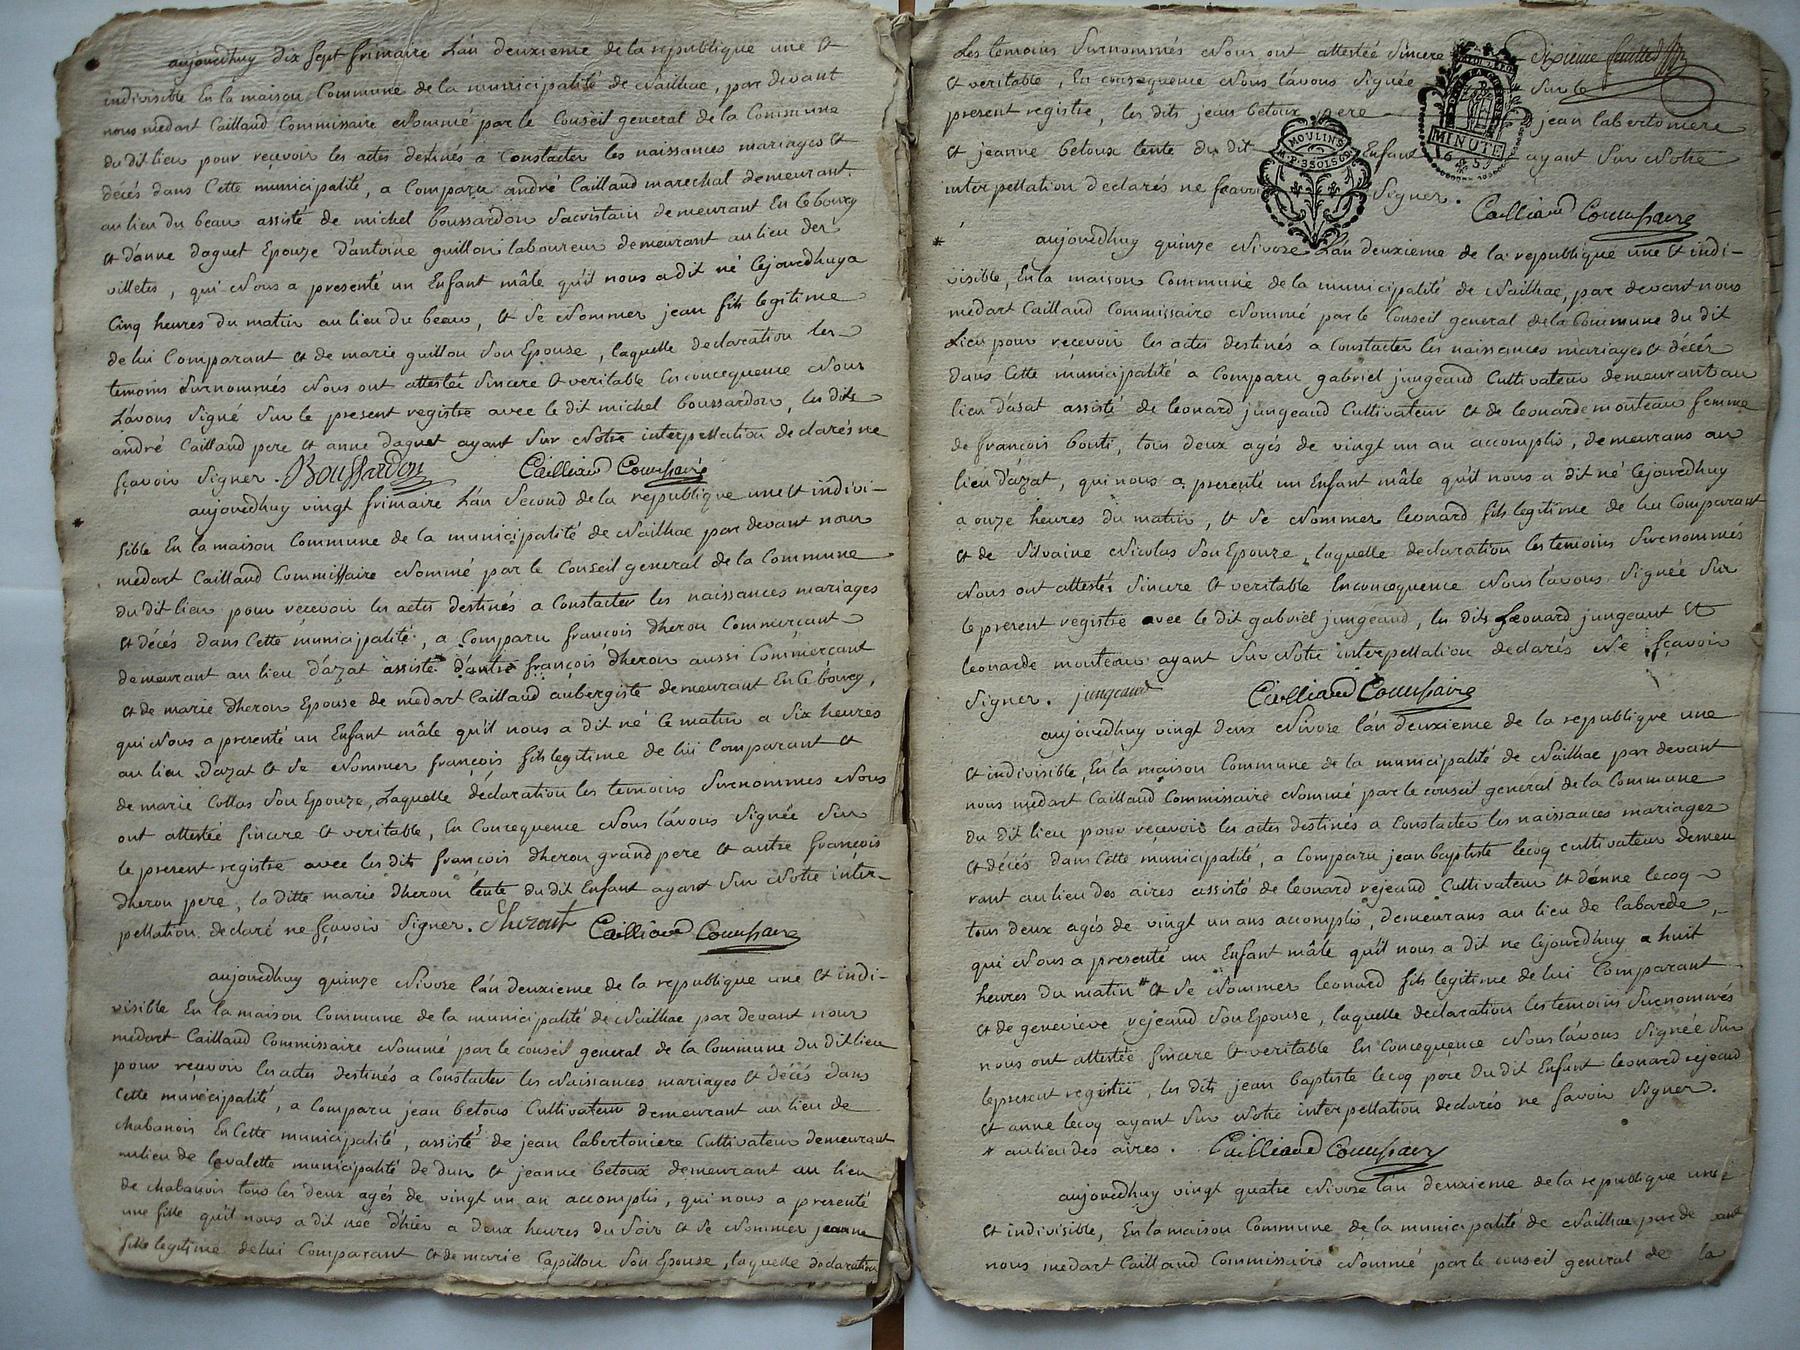 aujourdhuy dix Sept frimaire L'an deuxieme de la republique une et
indivisible En la maison Commune de la municipalité de Nailhac, par devant
nous medart Caillaud Commissaire Nommé par le Conseil general de la Commune
du dit lieu pour recevoir les actes destinés a Constacter les naissances mariages et
décés dans Cette municipalité, a Comparu andré Caillaud marechal demeurant
au lieu du beau assisté de michel boussardon Sacristain demeurant En Ce bourg
et d'anne daguet Epouze d'antoine guillon laboureur demeurant au lieu des
villetes, qui Nous a presenté un Enfant mâle qu'il nous a dit né Cejourdhuy a
Cinq heures du matin au lieu du beau, et Se Nommer jean fils legitime
de lui Comparant et de marie guillon Son Epouse, laquelle declaration les
temoins Surnommés Nous ont attestée Sincere et veritable En concequence Nous
L'avons Signé Sur le present registre avec le dit michel boussardon, les dits
andré Caillaud pere et anne daguet ayant Sur Notre interpellation declarés ne
sçavoir Signer. Boussardon Cailliaud Commissaire
aujourdhuy vingt frimaire L'an Second de la republique une et indivi-
sible En la maison Commune de la municipalité de Nailhac par devant nous
medart Caillaud Commissaire Nommé par le Conseil general de la Commune
du dit lieu pour recevoir les actes destinés a Constacter les naissances mariages
et décés dans Cette municipalité, a Comparu françois dherou Commerçant
demeurant au lieu d'azat assisté d'autre françois dherou aussi Commerçant
et de marie dherou Epouse de medart Caillaud aubergiste demeurant En Ce bourg,
qui Nous a presenté un Enfant mâle qu'il nous a dit né Ce matin a Six heures
au lieu d'azat et Se Nommer françois fils legitime de lui Comparant et
de marie Collas Son Epouze, Laquelle déclaration les temoins Surnommes Nous
ont attestée Sincere et veritable, En Concequence Nous L'avons Signée Sur
le present registre avec les dits françois dherou grand pere et autre françois
dherou pere, la ditte marie dherou tente du dit Enfant ayant Sur Notre inter-
pellation declaré ne sçavoir Signer. Cailliaud Commissaire
aujourdhuy quinze Nivose L'an deuxieme de la republique une et indi-
visible En la maison Commune de la municipalité de Nailhac par devant nous
medart Caillaud Commissaire Nommé par le conseil general de la Commune du dit lieu
pour recevoir les actes destinés a Constacter les Naissances mariages et décés dans
Cette municipalité, a Comparu jean betous Cultivateur demeurant au lieu de
chabanois En Cette municipalité, assisté de jean labertoniere Cultivateur demeurant
au lieu de Lavalette municipalité de dun et jeanne betoux demeurant au lieu
de chabanois tous les deux agés de vingt un an accomplis, qui nous a presenté
une fille qu'il nous a dit née d'hier a deux heures du Soir et Se Nommer jeanne
fille legitime de lui Comparant et de marie Capillou Son Epouse, laquelle declaration
Les temoins Surnommés Nous ont attestée Sincere
Dixieme feuillet
et veritable, En consequence Nous l'avons Signée Sur le
present registre, les dits jean betoux pere jean labertoniere
et jeanne betoux tente du dit Enfant ayant Sur Notre
interpellation declarés ne sçavoir Signer.
MINUTE
MOULINS
Cailliaud Commissaire
* aujourdhuy quinze Nivose L'an deuxieme de la republique une et indi-
visible, En la maison Commune de la municipalité de Nailhac, par devant nous
medart Caillaud Commissaire Nommé par le Conseil general de la Commune du dit
Lieu pour recevoir les actes destinés a Constacter les naissances mariages et décés
dans Cette municipalité a Comparu gabriel jungeaud Cultivateur demeurant au
lieu d'asat assisté de leonard jungeaud Cultivateur et de leonarde monteau femme
de françois bouti, tous deux agés de vingt un an accomplis, demeurans au
lieu d'azat, qui nous a presenté un Enfant mâle qu'il nous a dit né Cejourdhuy
a onze heures du matin, et Se Nommer leonard fils legitime de lui Comparant
et de Silvaine Nicolas Son Epouze, laquelle declaration les temoins Surnommés
Nous ont attestés Sincere et veritable En concequence Nous l'avons Signée Sur
le present registre avec le dit gabriel jungeaud, les dits Leonard jungeaut et
leonarde monteau ayant Sur Notre interpellation declarés Ne sçavoir
Signer. jungeaud Cailliaud Commissaire
aujourdhuy vingt deux Nivose l'an deuxieme de la republique une
et indivisible, En la maison Commune de la municipalité de Nailhac par devant
nous medart Caillaud Commissaire Nommé par le conseil general de la Commune
du dit lieu pour recevoir les actes destinés a Constacter les naissances mariages
et décés dans Cette municipalité, a Comparu jean baptiste lecoq cultivateur demeu
rant au lieu des aires assisté de leonard rejeaud Cultivateur et d'anne lecoq
tous deux agés de vingt un ans accomplis, demeurans au lieu de labarde,
qui Nous a presenté un Enfant mâle qu'il nous a dit ne Cejourdhuy a huit
heures du matin * et Se Nommer leonard fils legitime de lui Comparant
et de genevieve rejeaud Son Epouse, laquelle declaration les temoins Surnommés
nous ont attestée Sincere et veritable En Concequence Nous l'avons Signée Sur
le present registre, les dits jean baptiste lecoq pere du dit Enfant leonard rejeaud
et anne lecoq ayant Sur Notre interpellation declarés ne Savoir Signer.
* au lieu des aires. Cailliaud Commissaire
aujourdhuy vingt quatre Nivose l'an deuxieme de la republique une
et indivisible, En la maison Commune de la municipalité de Nailhac par devant
nous medart Caillaud Commissaire Nommé par le conseil general de la